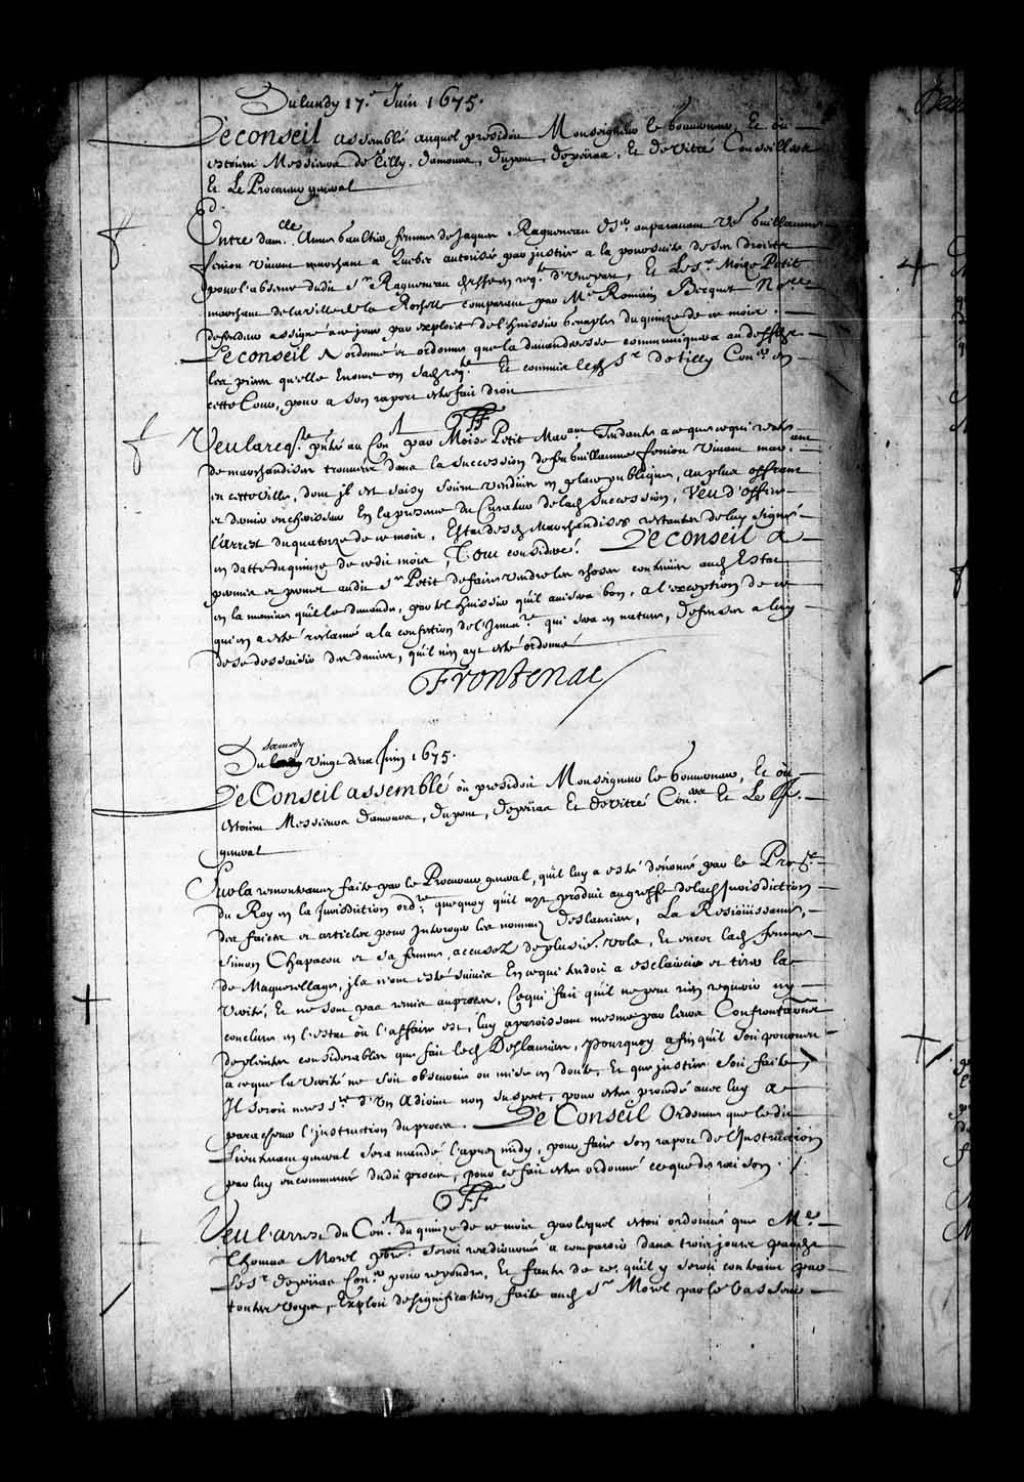 Du lundy 17.e Juin 1675.
Le conseil assemblé auquel presidoit Monseigneur le gouverneur, Et ou
estoient Messieurs de Tilly, damours, dupont, depeiras, Et de Vitré Conseillers
Et Le Procureur general
Entre dam.lle Anne gaultier femme de Jaques Ragueneau auparavant Ve guillaume
feniou vivant marchant a Quebec autorisée par justice a la poursuite de ses droits
pour l'absence dudit Sr Ragueneau d'Une part, Et Le Sr Moise Petit
marchant de la Ville de la Rochelle comparant par Me Romain Becquet No.re
defendeur assigné a ce jour par exploit de l'huissier du quinze de ce mois.
Le conseil A ordonné et ordonne que la demanderesse communiquera au deffend.r
les pieces qu'elle Enonce en sad. req.te Et commis led. Sr de Tilly Con.er en
cette Cour, pour a son raport estre fait droit
Veu la req.te pñtée au Con.l par Moise Petit Mar.ant Tendante a ce que ce qui reste
de marchandises trouvées dans la succession de feu guillaume fenion vivant mar.ant
en cette ville, dont jl est saisy soient vendües en place publique, au plus offrant
et dernier encherisseur En la presence du Curateur de lad. succession, Veu d'office
l'arrest du quatorze de ce mois, Estat desd. Marchandises restantes de luy signé
en datte du quinze de cedit mois, Tout consideré. Le conseil a
permis et permet audit Sr Petit de faire vendre les choses contenües aud. Estat
en la maniere qu'il le demande, par tel huissier qu'il avisera bon, a l'exception de ce
qui en a esté reclamé a la confection de l'Inven.re qui sera en nature, defenses a luy
de se dessaisir des deniers, qu'il n'en ayt esté ordonné
Frontenac
samedy
Du vingt deux Juin 1675.
Le Conseil assemblé ou presidoit Monseigneur le gouverneur, Et où
estoient Messieurs damours, dupont, depeiras Et de Vitré Con.ers Et Le
general
Sur la remontrance faite par le Procureur general, qu'il luy a esté denoncé par le Pro.r
du Roy en la Jurisdiction ord.re que quoy qu'il ayt produit au greffe de lad. jurisdiction
des faicts et articles pour Interoger les nommez deslaurier, La Resioüissance,
Simon Chapacou et sa femme, accusez de plusie.rs vols, Et encor lad. femme
de Maquerellage, jls n'ont esté suivis En ce qui tendoit a esclaircir et tirer la
Verité, Et ne sont pas remis au procez, Ce qui fait qu'il ne peut rien requerir ny
conclure en l'estat où l'affaire est, luy aparoissant mesme par leurs Confrontations
de plaintes considerables que fait led. Deslaurier, pourquoy afin qu'il soit pourveu
a ce que la verité ne soit obscurcie ou mise en doute, Et que justice soit faite,
Il seroit necess.re d'Un Adioint non suspect, pour estre procedé avec luy a
parachever l'instruction du procez. Le Conseil Ordonne que ledit
Lieutenant general sera mandé l'apres midy, pour faire son raport de l'Instruction
par luy encommencée dudit procez, pour ce fait estre ordonné ce que de raison.
Veu l'arrest du Con.l du quinze de ce mois, par lequel estoit ordonné que Me
Thomas Morel pbre. seroit readiourné a comparoir dans trois jours pardev.t
Le Sr depeiras Con.er pour repondre, Et faute de ce, qu'il y seroit contraint par
toutes voyes, Exploit de signification faite aud. Sr Morel par le Vasseur